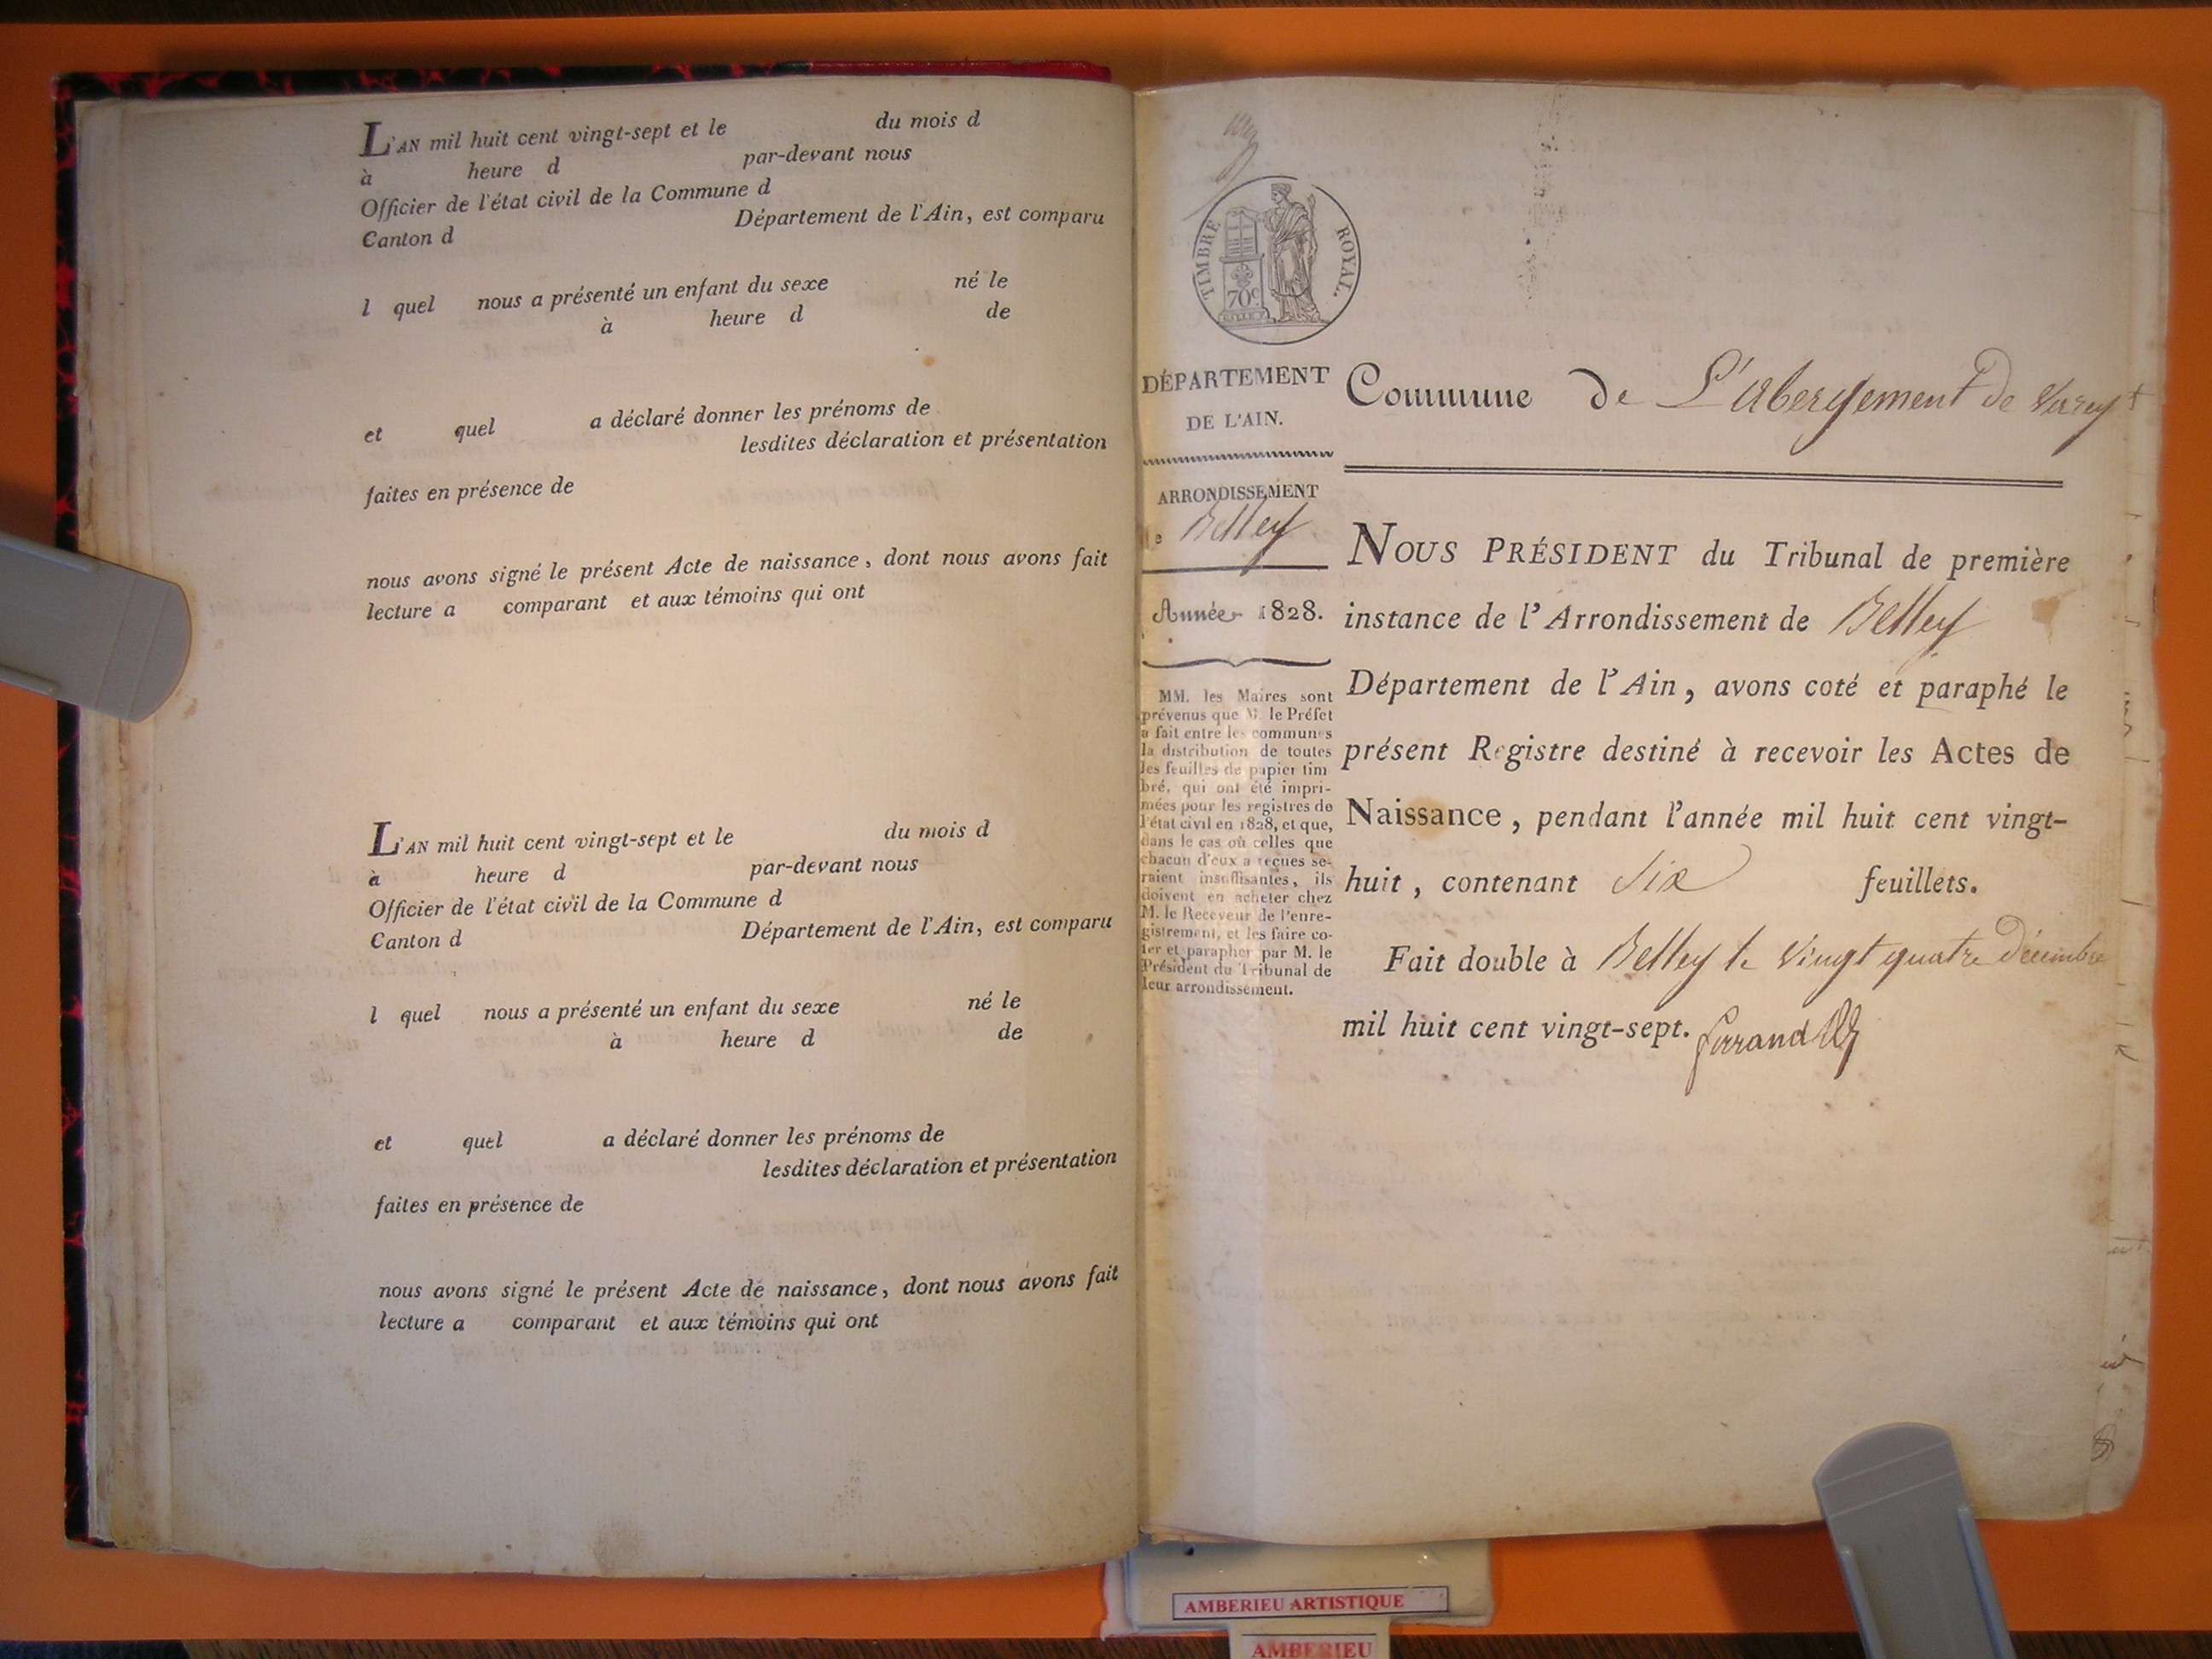 L'AN mil huit cent vingt-sept et le du mois d
à heure d par-devant nous
Officier de l'état civil de la Commune d
Canton d Département de l'Ain, est comparu
l quel nous a présenté un enfant du sexe né le
à heure d de
et quel a déclaré donner les prénoms de
lesdites déclaration et présentation
faites en présence de
nous avons signé le présent Acte de naissance, dont nous avons fait
lecture a comparant et aux témoins qui ont
L'AN mil huit cent vingt-sept et le du mois d
à heure d par-devant nous
Officier de l'état civil de la Commune d
Canton d Département de l'Ain, est comparu
l quel nous a présenté un enfant du sexe né le
à heure d de
et quel a déclaré donner les prénoms de
lesdites déclaration et présentation
faites en présence de
nous avons signé le présent Acte de naissance, dont nous avons fait
lecture a comparant et aux témoins qui ont
TIMBRE ROYAL.
70c
DÉPARTEMENT
DE L'AIN.
ARRONDISSEMENT
de Belley
Année 1828.
MM. les Maires sont
prévenus que M. le Préfet
a fait entre les communes
la distribution de toutes
les feuilles de papier tim
bré, qui ont été impri-
mées pour les registres de
l'état civil en 1828, et que,
dans le cas où celles que
chacun d'eux a reçues se-
raient insuffisantes, ils
doivent en acheter chez
M. le Receveur de l'enre-
gistrement, et les faire co-
ter et parapher par M. le
Président du Tribunal de
leur arrondissement.
Commune de L'abergement de Varey
NOUS PRÉSIDENT du Tribunal de première
instance de l'Arrondissement de Belley
Département de l'Ain, avons coté et paraphé le
présent Registre destiné à recevoir les Actes de
Naissance, pendant l'année mil huit cent vingt-
huit, contenant Six feuillets.
Fait double à Belley le vingt quatre décembre
mil huit cent vingt-sept.
AMBERIEU ARTISTIQUE
AMBERIEU